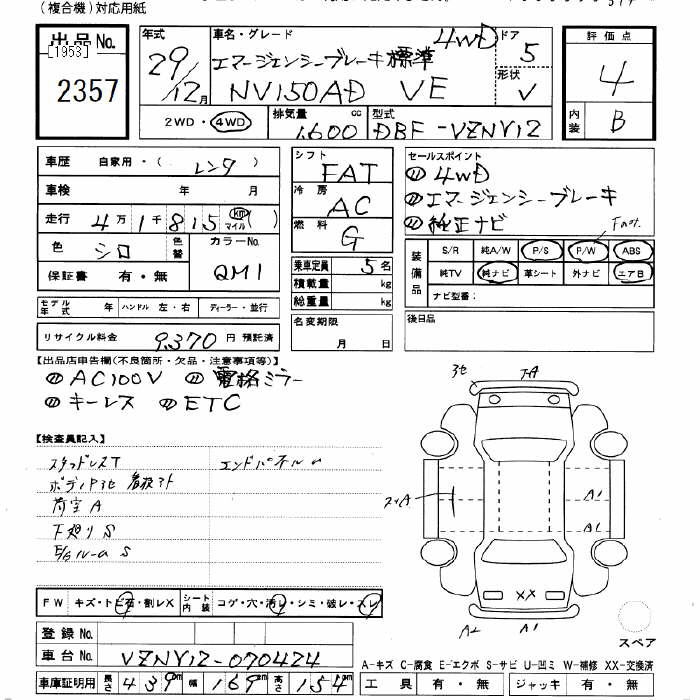 (複合機)対応用紙
出品No.
[1953]
2357
年式 29/12月
車名・グレード 4WD
エマージェンシーブレーキ標準
NV150AD VE
ドア 5
形状 V
評価点 4
内装 B
2WD・4WD
排気量 1,600 cc
型式 DBF-VZNY12
車歴 自家用・( レンタ )
車検 年 月
走行 4万1千815 km マイル
色 シロ 色替
カラーNo. QM1
保証書 有・無
モデル年式 年 ハンドル 左・右 ディーラー・並行
リサイクル料金 9,370 円 預託済
シフト FAT
冷房 AC
燃料 G
乗車定員 5名
積載量 kg
総重量 kg
名変期限 月 日
セールスポイント
〃 4WD
〃 エマージェンシーブレーキ
〃 純正ナビ
装備品
S/R 純A/W P/S P/W ABS
純TV 純ナビ 革シート 外ナビ エアB
ナビ型番:
後日品
【出品店申告欄(不良箇所・欠品・注意事項等)】
〃 AC100V 〃 電格ミラー
〃 キーレス 〃 ETC
【検査員記入】
スタッドレスT エンドパネルu
荷室A
下廻りS
E/gルームS
A1
A1
XX
A2 A1
FW キズ・トビ石・割レX シート内装 コゲ・穴・汚レ・シミ・破レ・スレ
登録No.
車台No. VZNY12-070424
車庫証明用 長さ 439cm 幅 169cm 高さ 154cm
スペア
A-キズ C-腐食 E-エクボ S-サビ U-凹ミ W-補修 XX-交換済
工具 有・無 ジャッキ 有・無